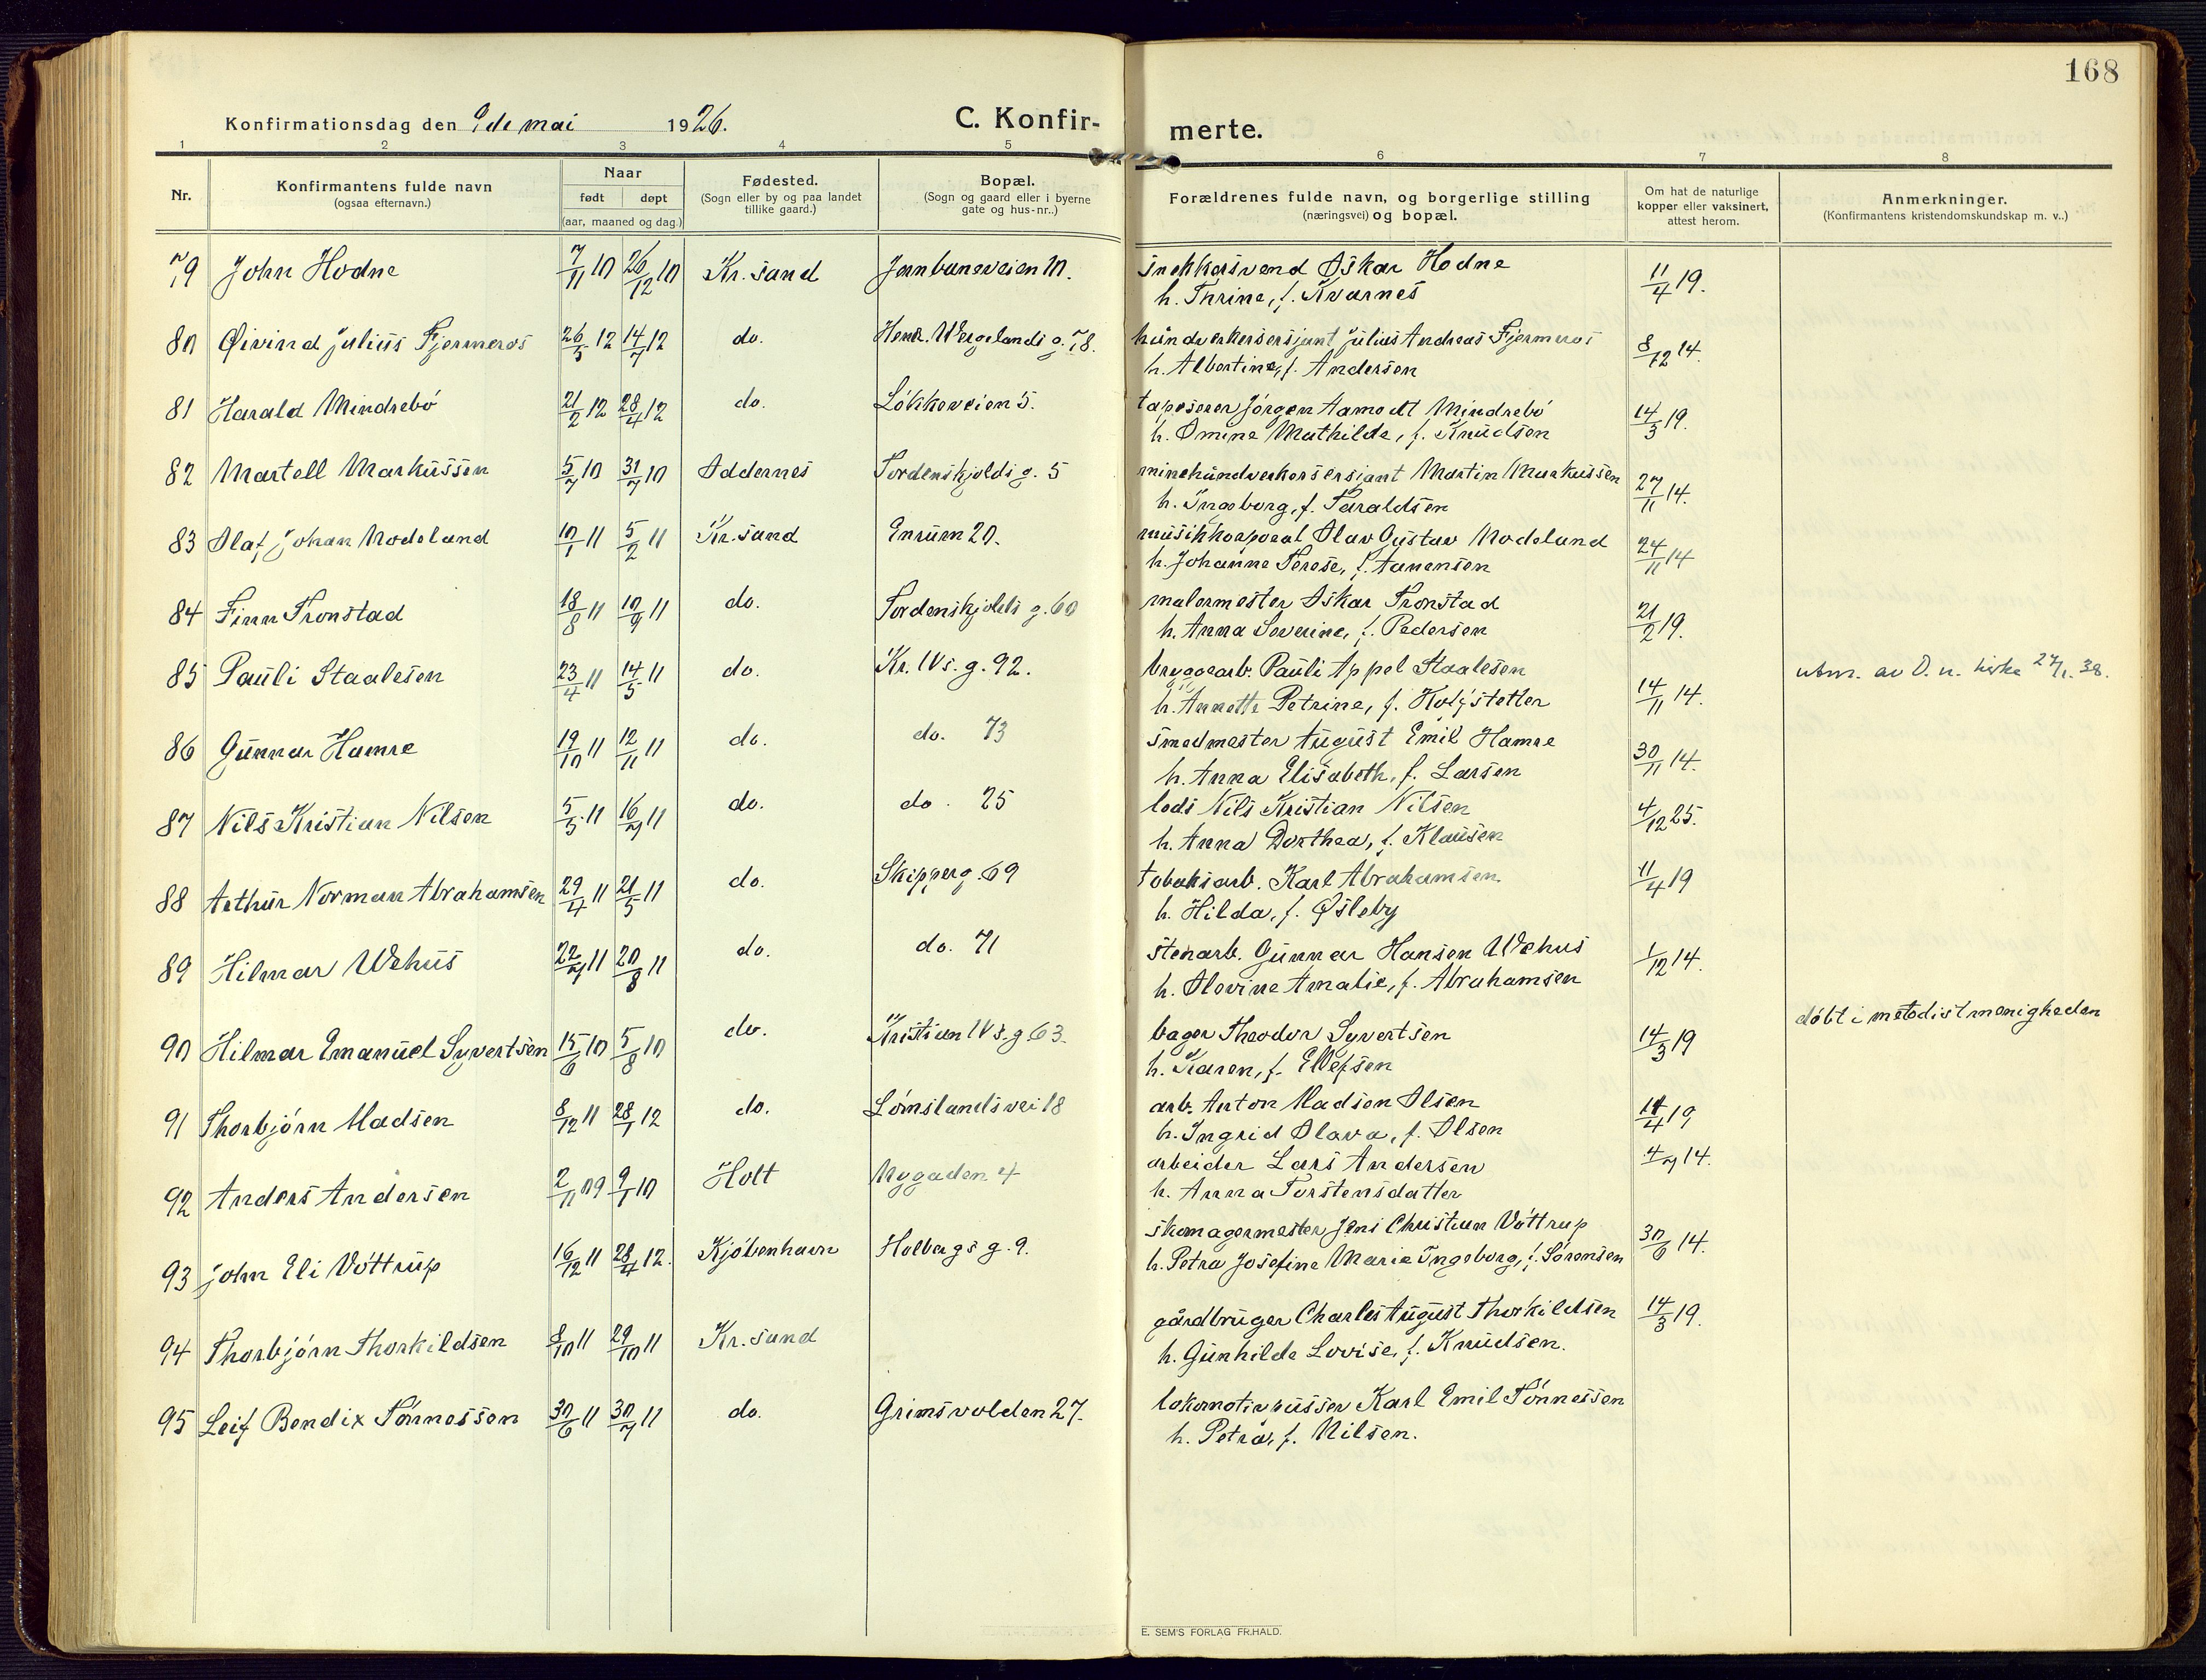 168
Konfirmationsdag den 9de mai 1926.
C. Konfir-
merte.
1 2 3 4 5 6 7 8
Nr.
Konfirmantens fulde navn
(ogsaa efternavn.)
Naar
født døpt
(aar, maaned og dag.)
Fødested.
(Sogn eller by og paa landet
tillike gaard.)
Bopæl.
(Sogn og gaard eller i byerne
gate og hus-nr..)
Forældrenes fulde navn, og borgerlige stilling
(næringsvei) og bopæl.
Om hat de naturlige
kopper eller vaksinert,
attest herom.
Anmerkninger.
(Konfirmantens kristendomskundskap m. v..)
79 John Hodne 7/11 10 26/12 10 Kr.sand Jernbaneveien 10. snekkersvend Oskar Hodne 11/4 19.
h. Thrine, f. Kvarnes
80 Øivind Julius Fjermeros 26/5 12 14/7 12 do. Henr. Wergelands g. 78. håndverkersersjant Julius Andreas Fjermeros 8/12 14.
h. Albertine, f. Andersen
81 Harald Mindrebö 21/2 12 28/4 12 do. Lökkeveien 5. tapeserer Jörgen Aamodt Mindrebö 14/3 19.
h. Omine Mathilde, f. Knudsen
82 Martell Markussen 5/7 10 31/7 10 Oddernes Tordenskjolds g. 5 minehåndverkersersjant Martin Markussen 27/11 14.
h. Ingeborg, f. Taraldsen
83 Olaf Johan Nodeland 10/1 11 5/2 11 Kr.sand Enrum 20. musikkorporal Olav Gustav Nodeland 24/11 14
h. Johanne Terese, f. Aanensen
84 Finn Tronstad 18/8 11 10/9 11 do. Tordenskjolds g. 60 malermester Oskar Tronstad 21/2 19.
h. Anna Severine, f. Pedersen
85 Pauli Staalesen 23/4 11 14/5 11 do. Kr. IVs. g. 92. bryggearb. Pauli Appel Staalesen 14/11 14. utm. av D. n. kirke 27/1. 38.
h. Annette Petrine, f.
86 Gunnar Hamre 19/10 11 12/11 11 do. do. 73 smedmester August Emil Hamre 30/11 14.
h. Anna Elisabeth, f. Larsen
87 Nils Kristian Nilsen 5/5 11 16/7 11 do. do. 25 lods Nils Kristian Nilsen 4/12 25.
h. Anna Dorthea, f. Klausen
88 Arthur Norman Abrahamsen 29/4 11 21/5 11 do. Skipperg. 69 tobaksarb. Karl Abrahamsen 11/4 19
h. Hilda, f. Øsleby
89 Hilmar Wehus 22/7 11 20/8 11 do. do. 71 stenarb. Gunnar Hansen Wehus 1/12 14.
h. Olovine Amalie, f. Abrahamsen
90 Hilmar Emanuel Syvertsen 15/6 10 5/8 10 do. Kristian IVs. g 63. bager Theodor Syvertsen 14/3 19 döbt i metodistmenigheden
h. Karen, f. Ellefsen
91 Thorbjörn Madsen 8/12 11 28/1 12 do. Lömslandsvei 18 arb. Anton Madsen Olsen 11/4 19
h. Ingrid Olava, f. Olsen
92 Anders Andersen 2/11 09 9/1 10 Holt Nygaden 4 arbeider Lars Andersen 4/7 14.
h. Anna Torstensdatter
93 John Eli Vöttrup 16/12 11 28/4 12. Kjöbenhavn Holbergs g. 9. skomagermester Jens Christian Vöttrup 30/6 14.
h. Petra Josefine Marie Ingeborg, f. Sörensen
94 Thorbjörn Thorkildsen 8/10 11 29/10 11 Kr.sand gårdbruger Charles August Thorkildsen 14/3 19.
h. Gunhilde Lovise, f. Knudsen.
95 Leif Bendix Tönnessen 30/6 11 30/7 11 do. Grimsvolden 27. lokomotivpusser Karl Emil Tönnessen
h. Petra, f. Nilsen.
E. SEM'S FORLAG FR.HALD.